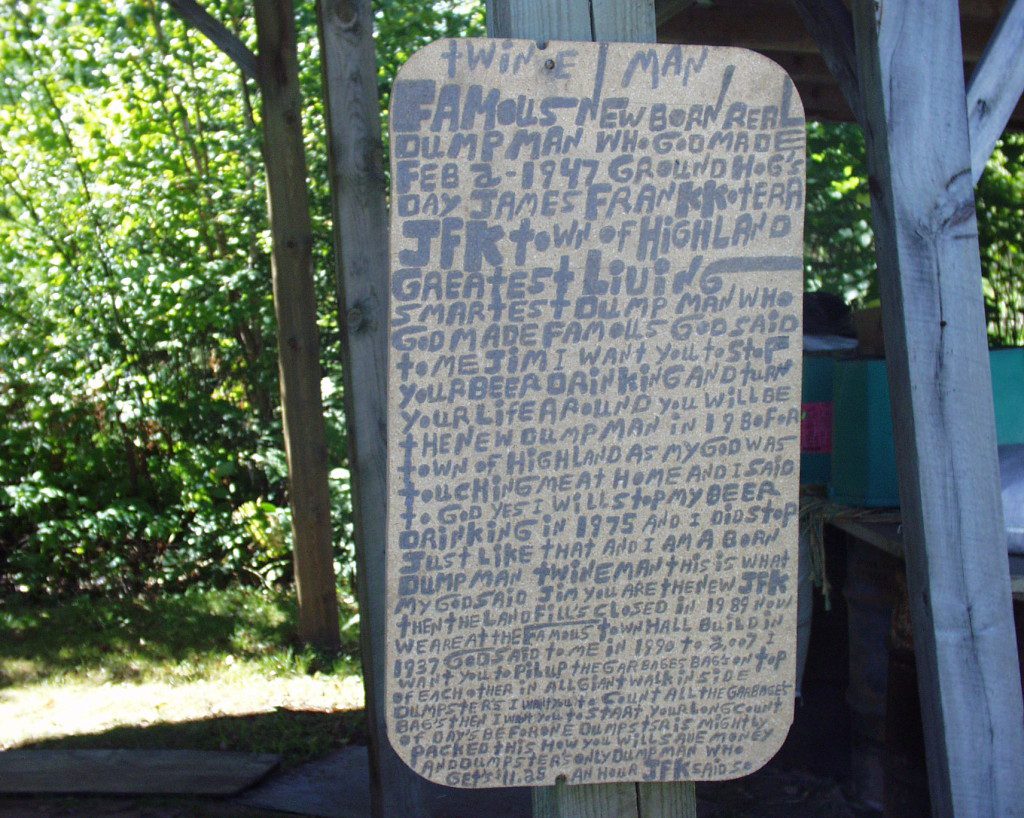 twinE MAN
FAMOUS NEWBORN REAL
DUMP MAN WHO GOD MADE
FEB 2-1947 GROUND HOG'S
DAY JAMES FRANK KOTERA
JFK tOWN OF HIGHLAND
GREAtESt LiViNG
SMARtESt DUMP MAN WHO
GOD MADE FAMOUS GOD SAiD
tO ME JiM I WANt YOU tO StOP
YOUR BEER DRiNKiNG AND tURN
YOUR LiFE AROUND YOU WiLL BE
tHE NEW DUMP MAN iN 1980 FOR
tOWN OF HiGHLAND AS MY GOD WAS
tOUCHiNG ME At HOME AND I SAiD
tO GOD YES I WiLL StOP MY BEER
DRiNKiNG iN 1975 AND I DiD StOP
JUSt LiKE tHAt AND I AM A BORN
DUMP MAN tWiNE MAN tHiS iS WHAt
MY GOD SAiD JiM YOU ARE tHE NEW JFK
tHEN tHE LAND FiLL'S CLOSED iN 1989 NOW
WE ARE At tHE FAMOUS tOWN HALL BUiLDiN
1937 GOD SAiD tO ME iN 1990 tO 2007 I
WANt YOU tO PiL UP tHE GARBAGES BAG'S ON tOP
OF EACH OtHER iN ALL GiANt WALK iN SiDE
DUMPStERS I WANt YOU tO COUNt ALL tHE GARBAGES
BAG'S tHEN I WANt YOU tO StARt YOUR LONG COUNt
DAY'S BEFOR ONE DUMPStER iS MiGHtLY
PACKED tHiS HOW YOU WiLL SAVE MONEY
AND DUMPStERS ONLY DUMP MAN WHO
GEt'S $11.25 AN HOUR JFK SAiD SO